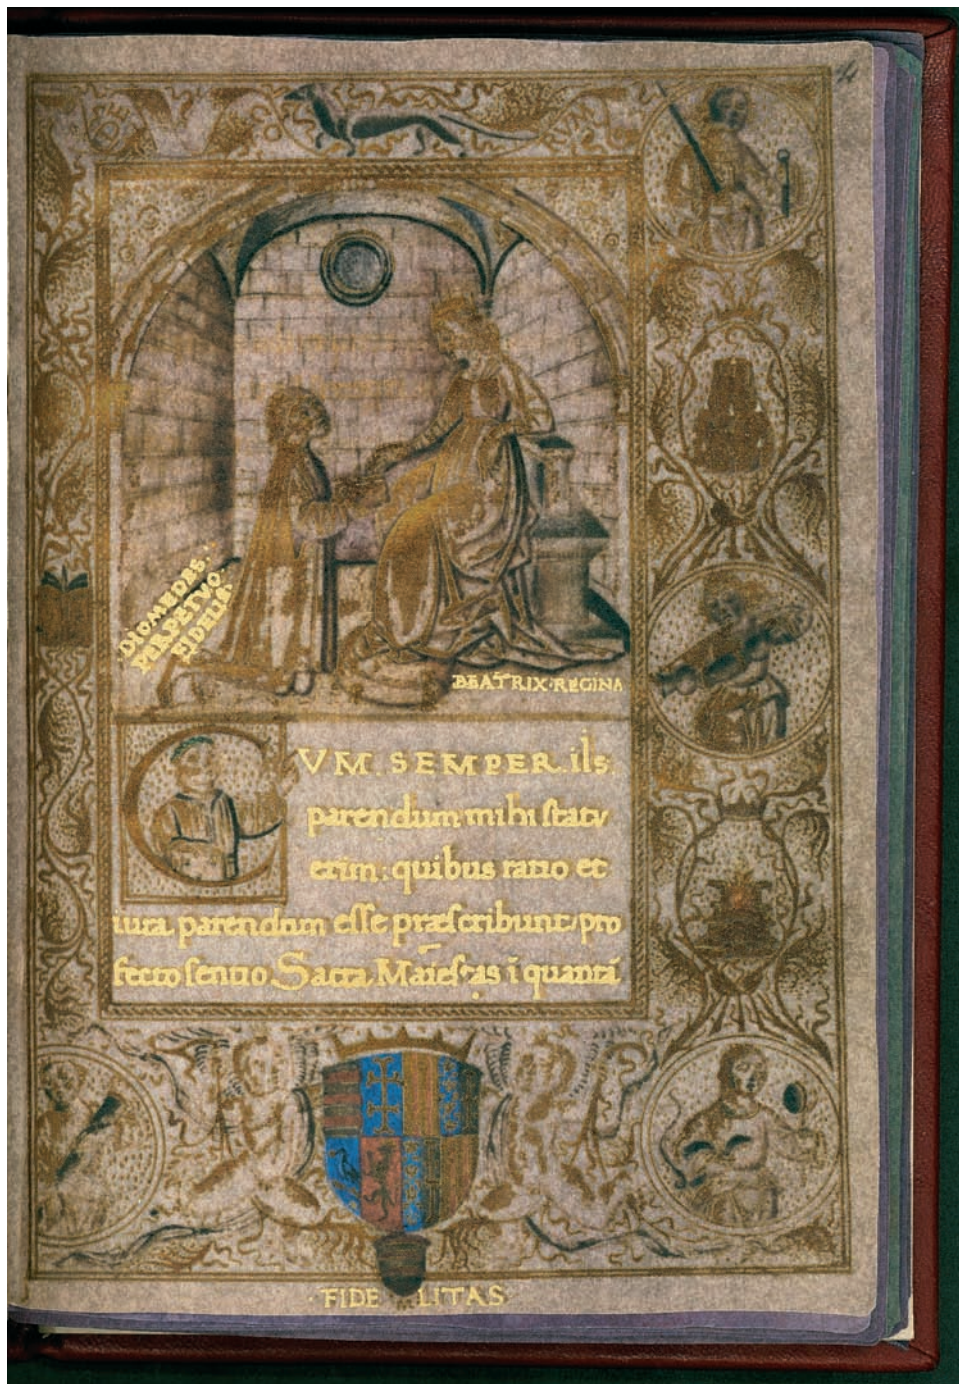 4
DIOMEDES.
PERPETVO
FIDELIS
BEATRIX·REGINA
CVM. SEMPER. iis.
parendum mihi ſtatv
erim: quibus ratio et
iura parendum eſſe præſcribunt, pro
fecto ſentio Sacra Maieſtas ī quantā
·FIDE LITAS